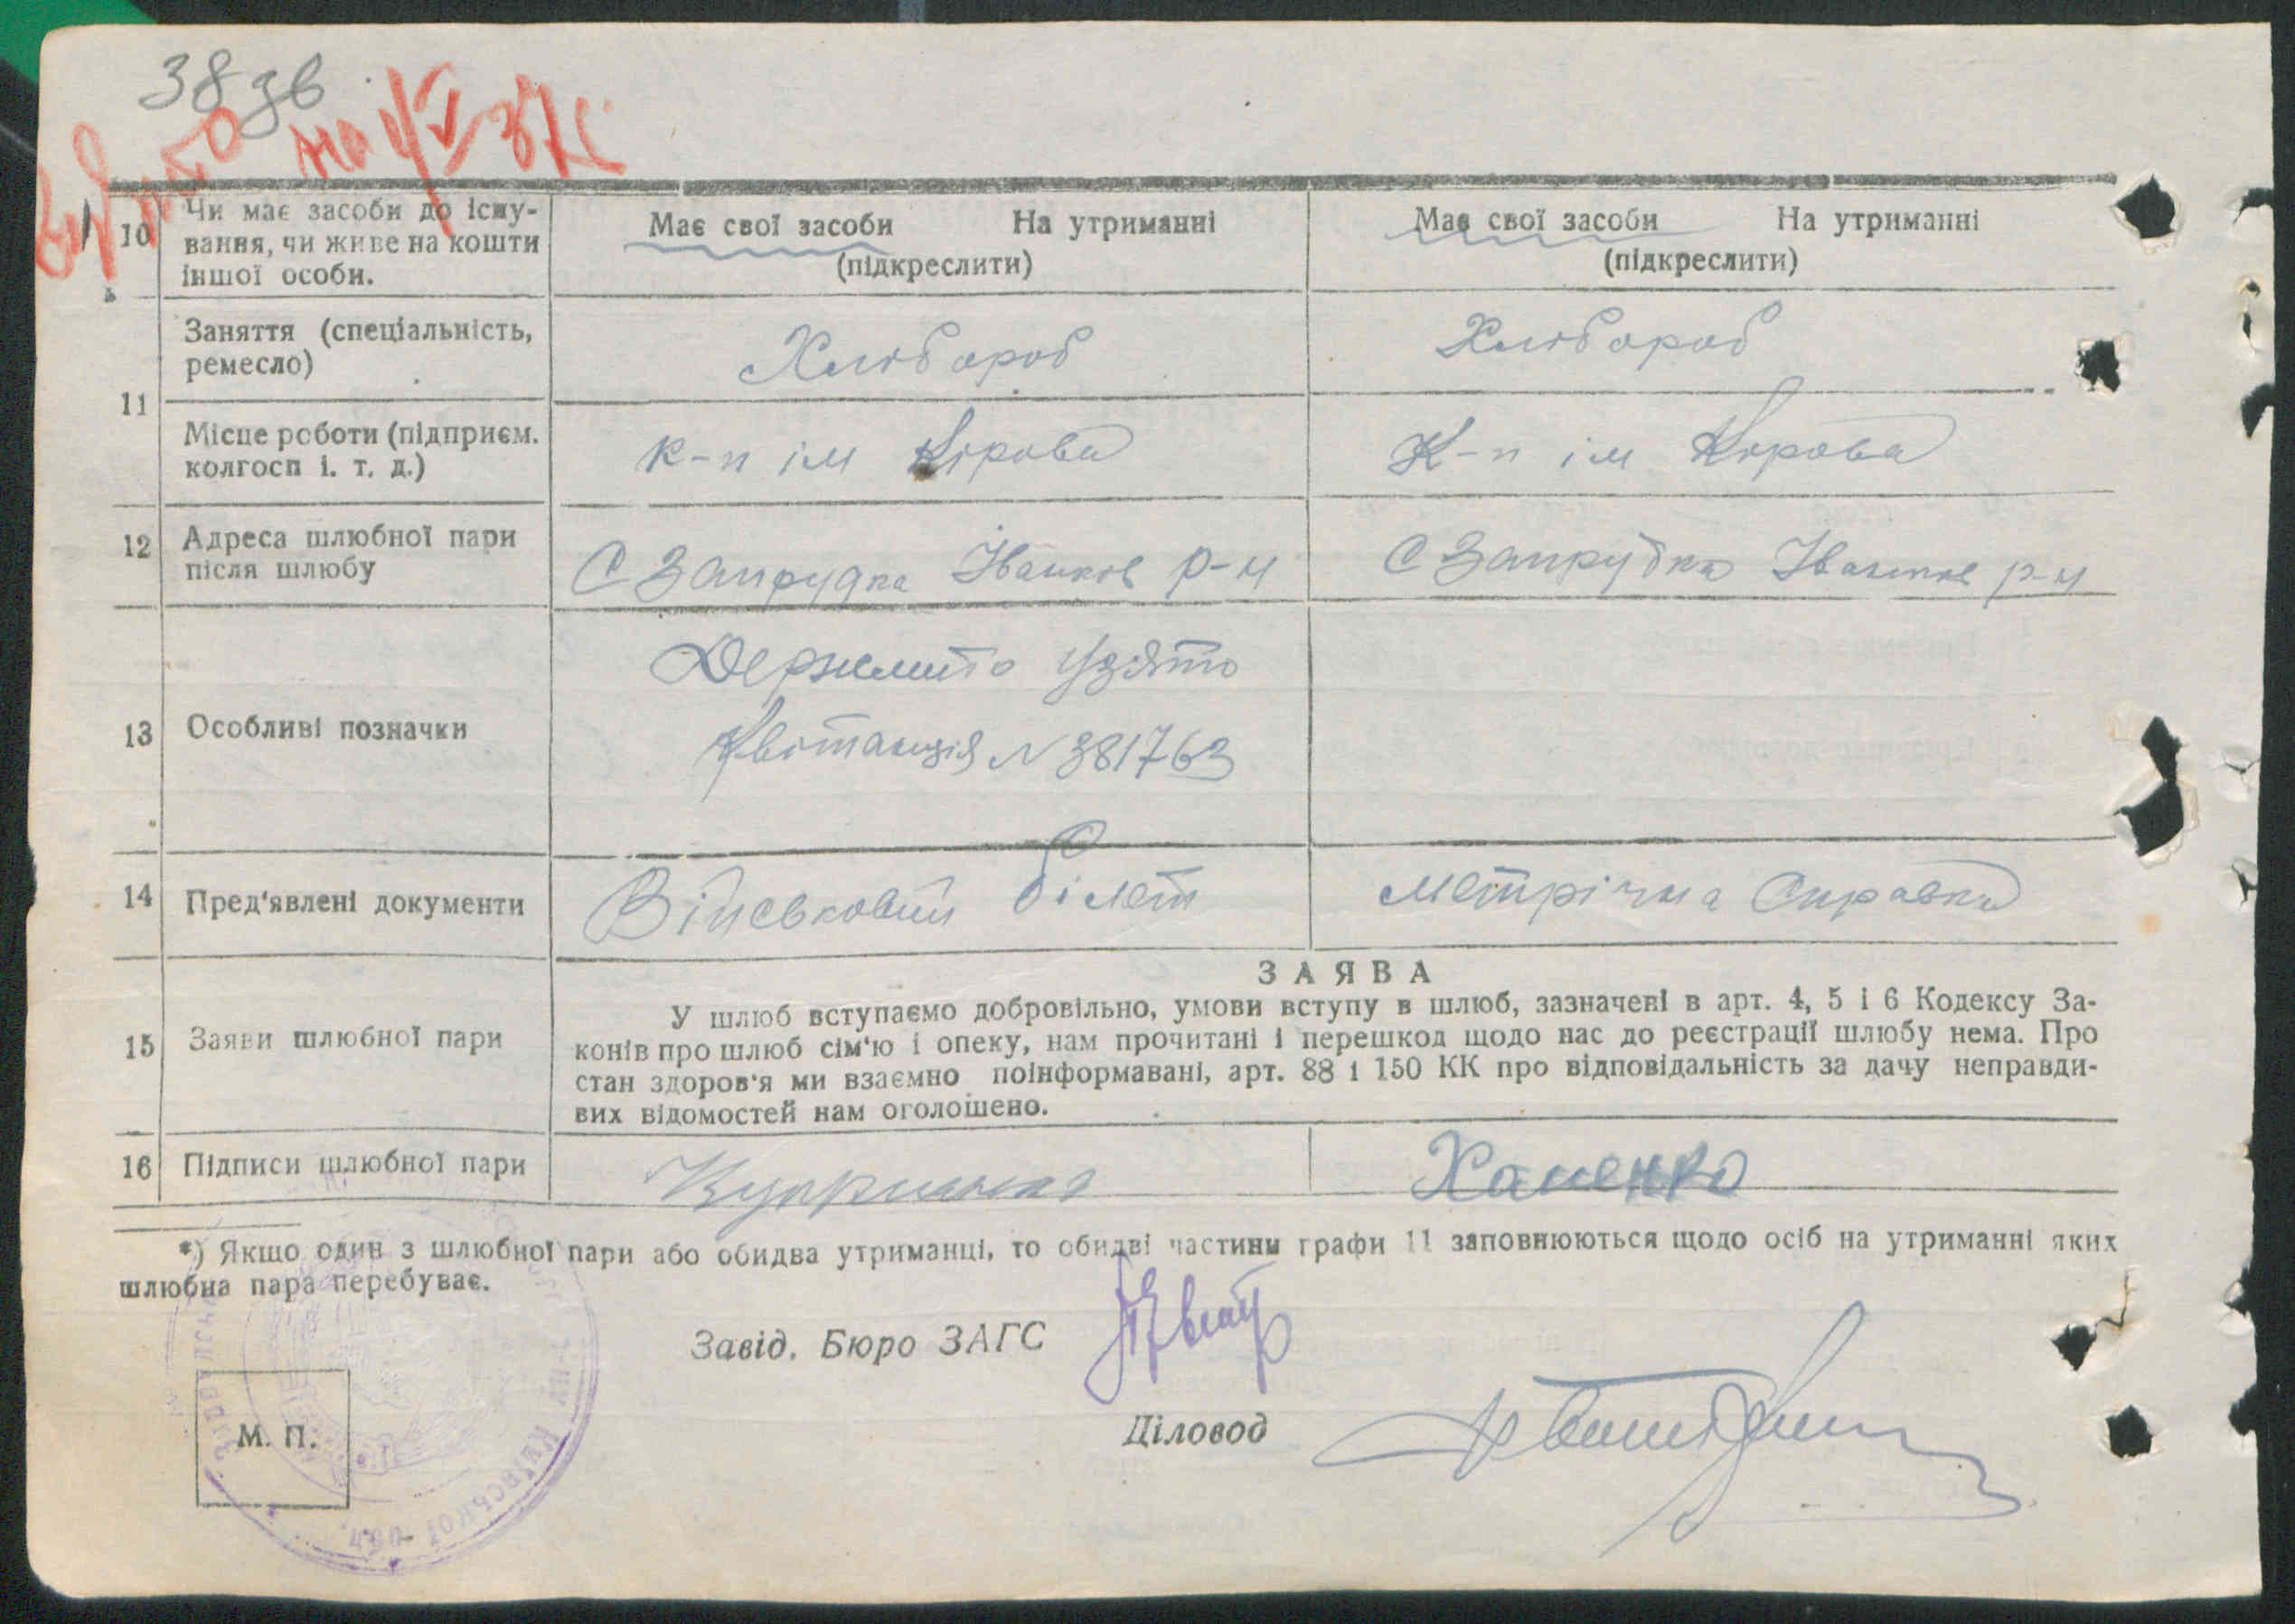 38 зв
на 4/V 37 г
10 Чи має засоби до існу-
вання, чи живе на кошти
іншої особи.
Має свої засоби На утриманні
(підкреслити)
Має свої засоби На утриманні
(підкреслити)
11
Заняття (спеціальність,
ремесло)
Хлібороб
Хлібороб
Місце роботи (підприєм.
колгосп і. т. д.)
к-п ім Кірова
К-п ім Кірова
12 Адреса шлюбної пари
після шлюбу
С Запрудка Іванков р-н
С Запрудка Іванков р-н
13 Особливі позначки
Держмито узято
Квітанція N 381763
14 Пред'явлені документи
Військовий білет
Метрічна Справка
15 Заяви шлюбної пари
ЗАЯВА
У шлюб вступаємо добровільно, умови вступу в шлюб, зазначені в арт. 4, 5 і 6 Кодексу За-
конів про шлюб сім'ю і опеку, нам прочитані і перешкод щодо нас до реєстрації шлюбу нема. Про
стан здоров'я ми взаємно поінформавані, арт. 88 і 150 КК про відповідальність за дачу неправди-
вих відомостей нам оголошено.
16 Підписи шлюбної пари
Хаменко
*) Якщо один з шлюбної пари або обидва утриманці, то обидві частини графи 11 заповнюються щодо осіб на утриманні яких
шлюбна пара перебуває.
Завід. Бюро ЗАГС
Діловод
М. П.
р-ну Київської обл.